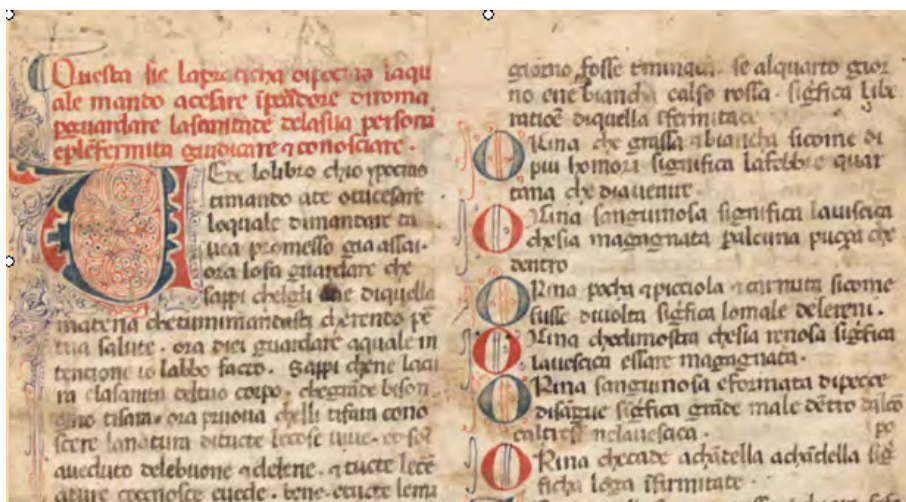 Questa sie lapraticha dipocras laqu
ale mando acesare īpadore diroma
pguardare lasanitade delasua persona
eplēfermita giudicare ⁊ conosciare.
Ete lolibro chio ypocras
timando ate occesare
loquale dimandare ta
uea promesso gia assai.
ora losa guardare che
sappi chelgli diquella
materia che cherendo pe
tua salute. ora diei guardare aquale in
tencione io labbo facto. Sappi chene laou
ra elasanita deltuo corpo. chegrāde bison
gno tisara. ora pruoua chelli tisara cono
scere lanatura ditucte lecose
aueduto delebuone ⁊ delene. ⁊ tucte lecē
ature cognosce euede. bene. etucte lema
giorno fosse se alquarto gior
no ene biancha calso rossa. sigfica libe
ratiōe diquella īfermitade
ORina che grassa ⁊biancha sicome di
piu homori significa lafebbre quar
tana che diauenire.
ORina sanguinosa significa lauescica
chesia magagnata palcuna pucça che
dentro
ORina pocha ⁊picciola ⁊ sicome
fusse diuolta sigfica lomale delereni.
ORina chedimostra chesia renosa sigfica
lauescica essare magagnata.
ORina sanguinosa eformata dipecce
disāgue sigfica grāde male dētro
nelauescica.
po
ORina checade achātella achādella sig
ficha lōga īfirmitate.